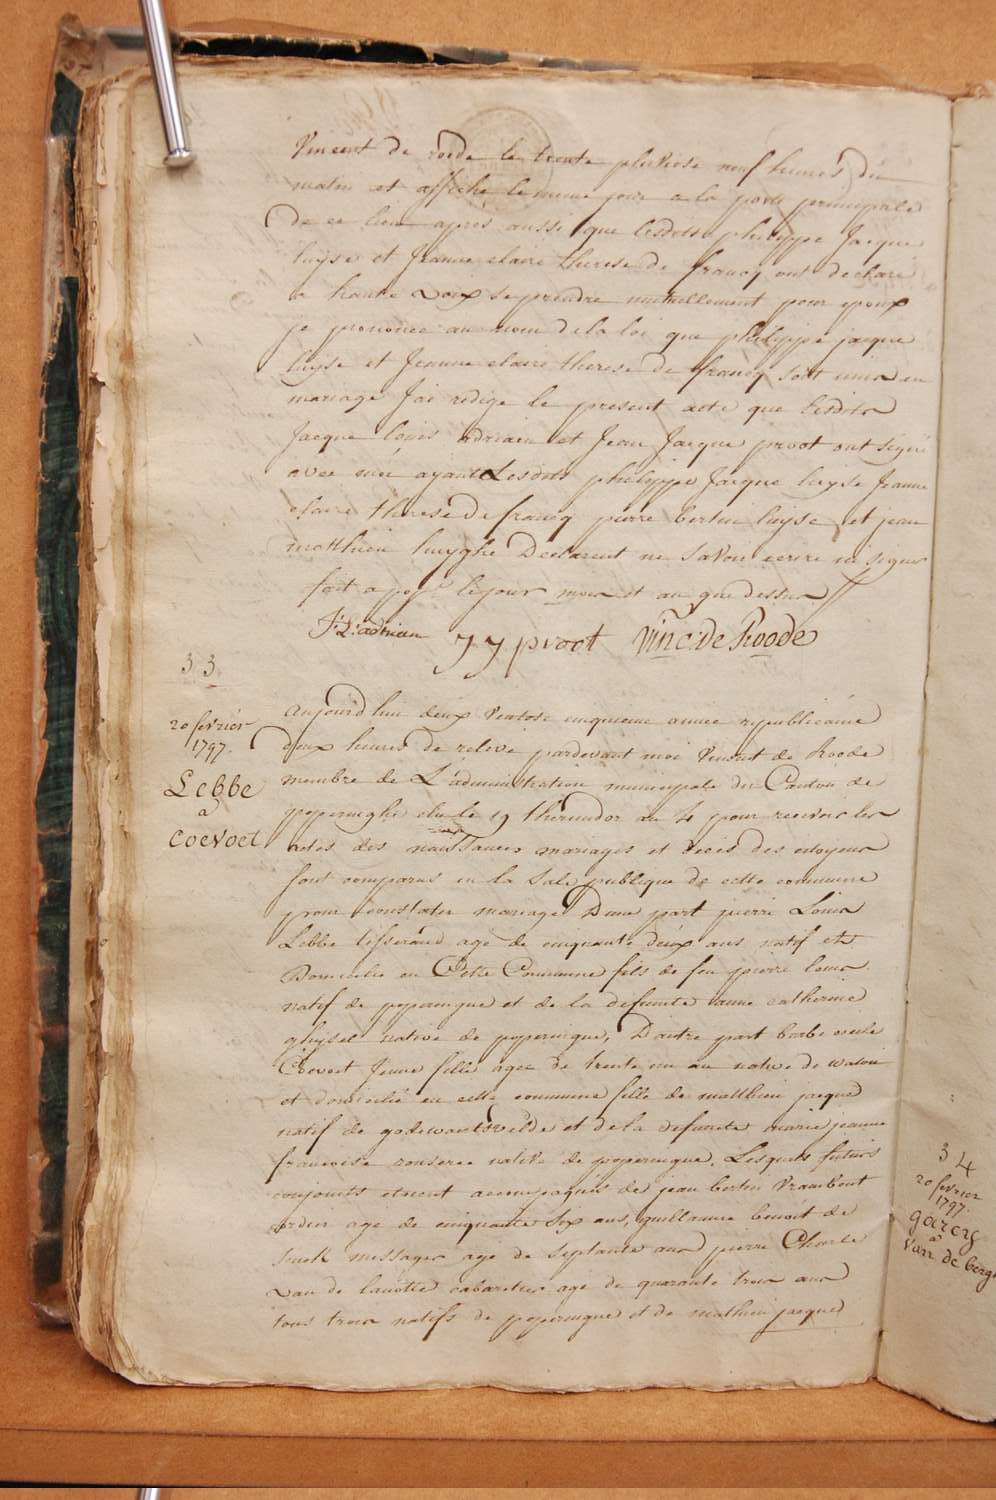 Vincent de roode le trente pluviose neuf heures du
matin et affiché le meme jour a la porte principale
de ce lieu apres aussi que lesdits philippe Jacque
luyse et Jeanne claire therese de francq ont declaré
a haute voix se prendre mutuellement pour epoux
je prononce au nom de la loi que philippe jacque
luyse et Jeanne claire therese de francq sont unis en
mariage J'ai redige le present acte que lesdits
Jacque louis adriaen et Jean Jacque proot ont signé
avec moi ayant Lesdits philippe Jacque luyse Jeanne
claire therese de francq pierre bertin luyse et jean
matthieu huyghe Declarent ne savoir ecrire ni signer
fait a pop. le jour mois et an que dessus
J: L: adriaen J J proot Vinc: De Roode
33
20 février
1797.
Lebbe
a
Coevoet
aujourd'hui deux Ventose cinquieme annee republicaine
deux heures de relivé pardevant moi Vincent de Roode
membre de L'administration municipale du Canton de
poperinghe elu le 19 thermidor an 4 pour recevoir les
actes des naissances mariages et décés des citoyens
sont comparus en la sale publique de cette commune
pour constater mariage D'une part pierre Louis
Lebbe tisserand agé de cinquante deux ans natif et
Domicilié en Cette Commune fils de feu pierre louis
natif de poperingue et de la defunte anne catherine
ghysel native de poperingue, D'autre part barbe
Coevoet Jeune fille agee de trente un an native de watou
et domicilié en cette commune fille de matthieu jacque
natif de godewaertsvelde et de la defunte marie jeanne
francoise native de poperingue. Lesquels futurs
conjoints etnent accompagnés de jean bertin Vrambout
agé de cinquante six ans, guillaume benoit de
messager agé de septante ans pierre Charle
van de lanotte cabaretier age de quarante trois ans
tous trois natifs de poperingue et de mathieu jacque
34
20 fevrier
1797.
a
van de berg